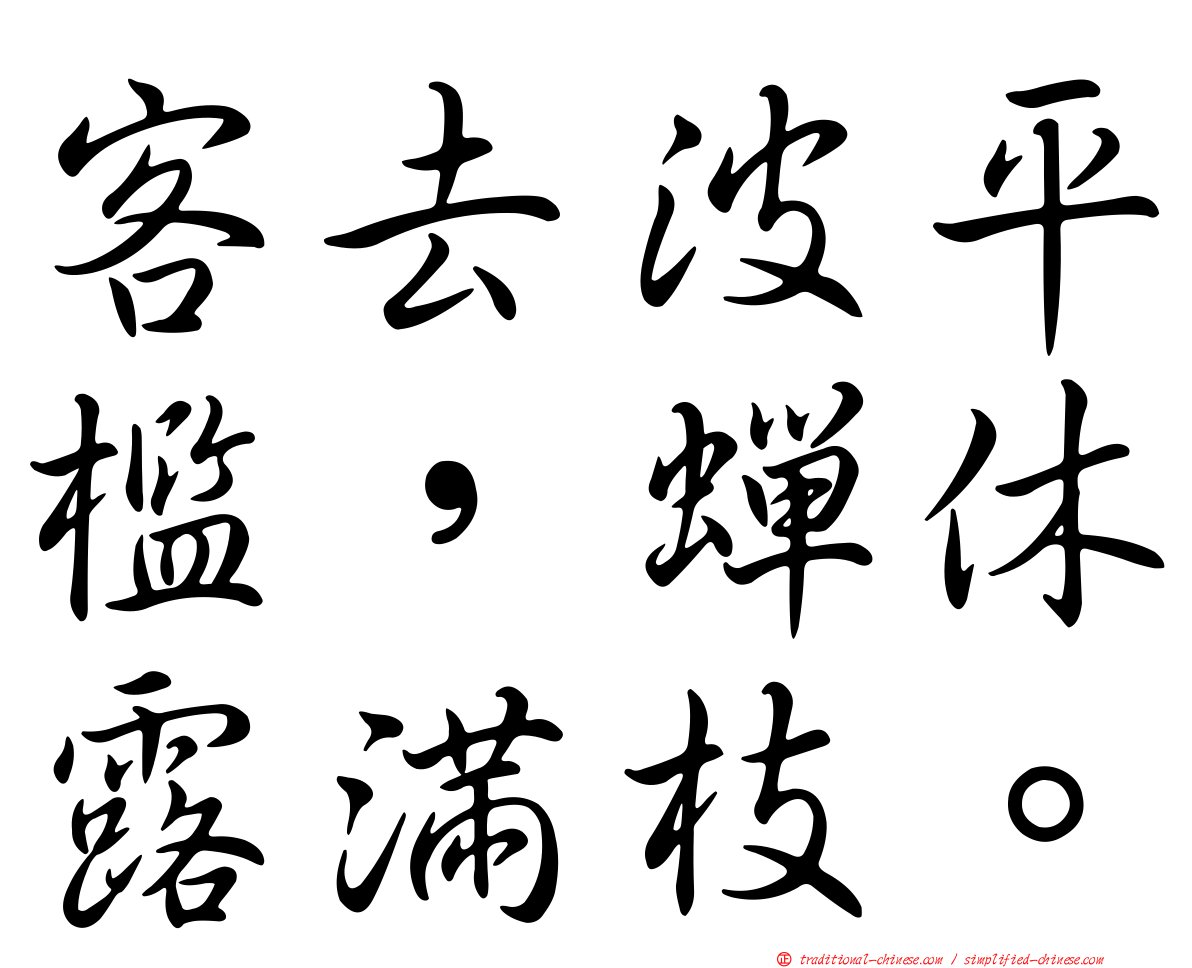 客去波平
檻，蟬休
露滿枝。
㊣ traditional-chinese.com / simplified-chinese.com